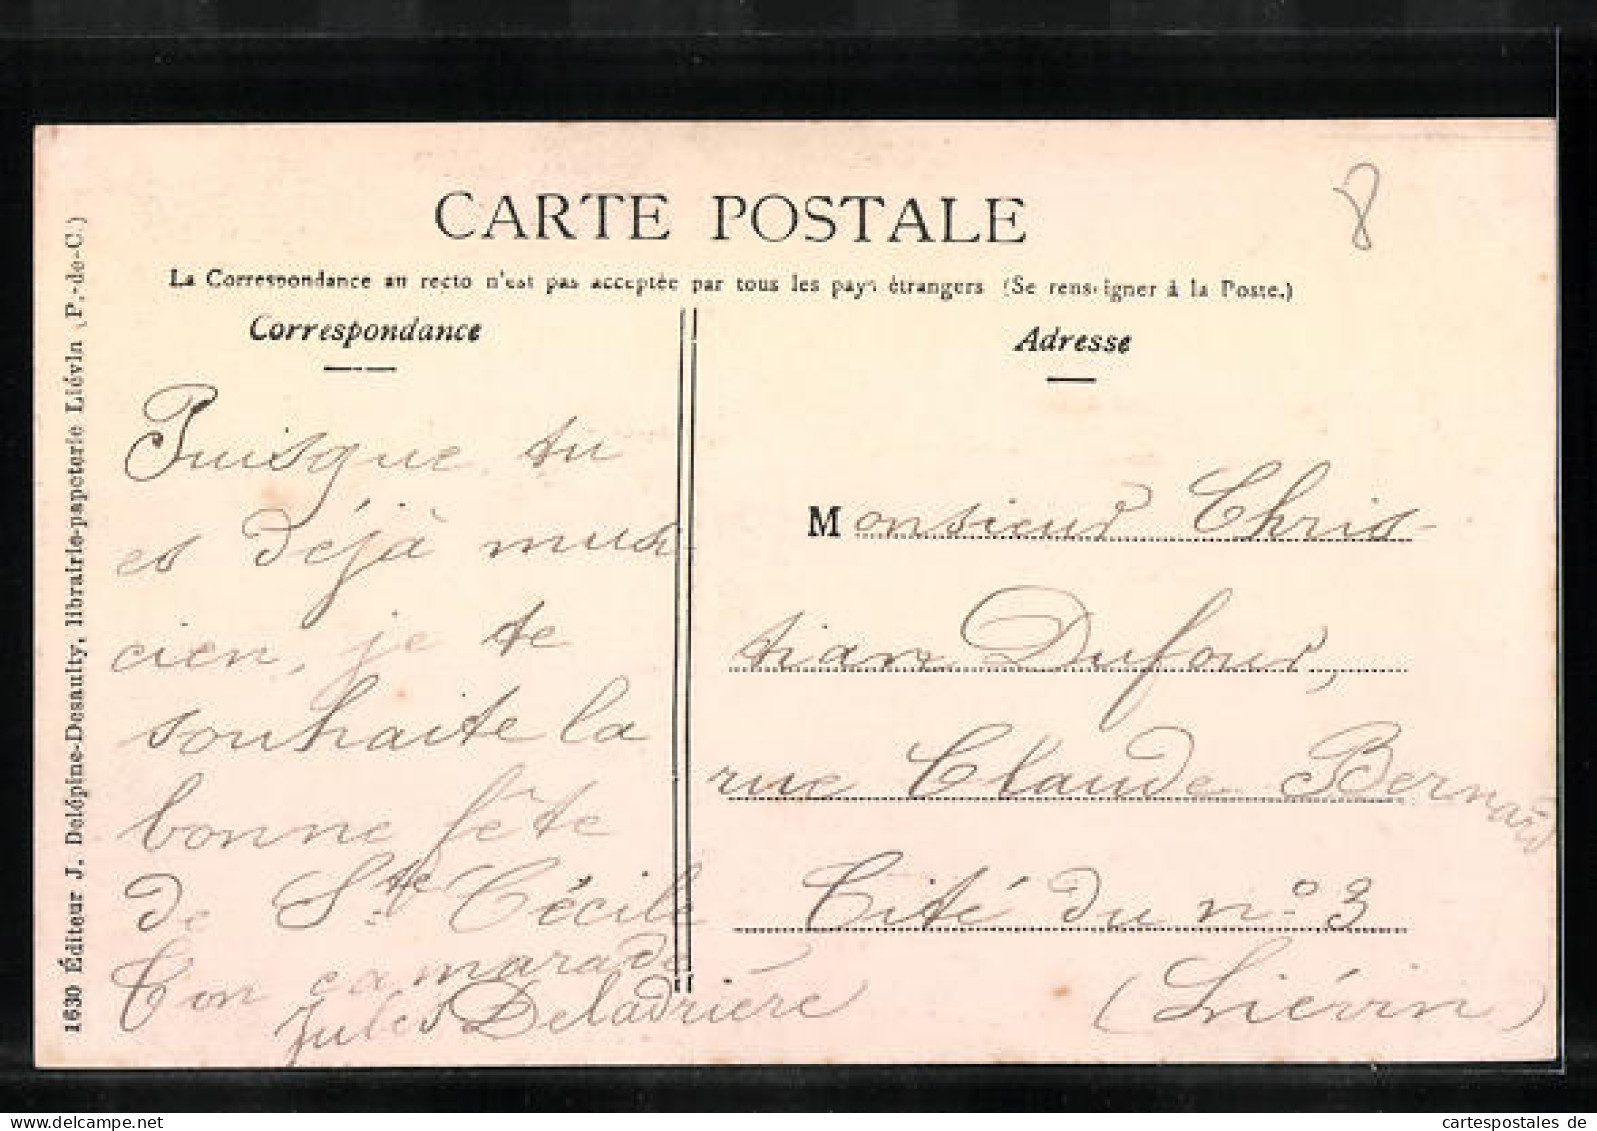 CARTE POSTALE
La Correspondance au recto n'est pas acceptée par tous les pays étrangers (Se renseigner à la Poste.)
Correspondance
Puisque tu
es déjà musi-
cien, je te
souhaite la
bonne fête
de Ste Cécile
Ton camarade
Jules Deladrière
Adresse
Monsieur Chris-
tian Dufour,
rue Claude Bernard
Cité du n° 3
(Liévin)
8
1630 Éditeur J. Delépine-Desaulty, librairie-papeterie Liévin (P.-de-C.)
cartespostales de